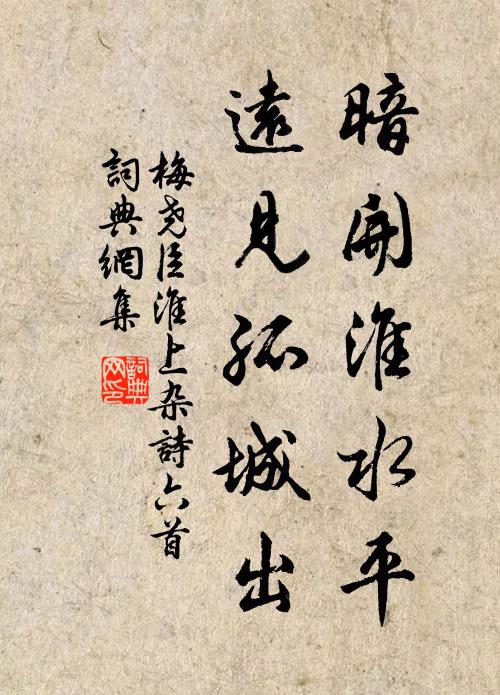 暗開淮水平
遠見孤城出
梅尧臣淮上杂詩六首
詞典網集
詞典網印